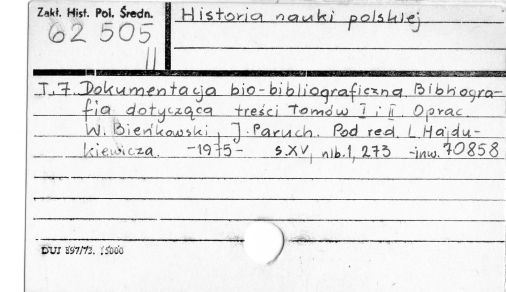 Zakł. Hist. Pol. Średn.
62 505
II
Historia nauki polskiej
T.7. Dokumentacja bio-bibliograficzna. Bibliogra-
fia dotycząca treści Tomów I i II. Oprac.
W. Bieńkowski, J. Paruch. Pod red. L. Hajdu-
kiewicza. -1975- s. XV, nlb. 1, 273 -inw. 70858
DUJ 897/73. 15000